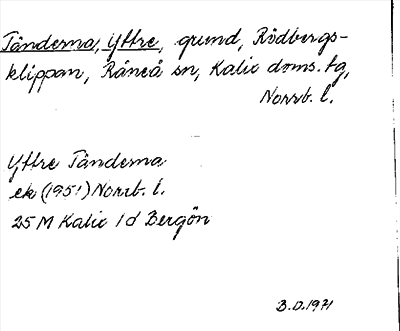 Tånderna, Yttre, grund, Rödbergs-
klippan, Råneå sn, Kalix doms. tg,
Norrb. l.
Yttre Tånderna
ek (1951) Norrb. l.
25 M Kalix 1 d Bergön
B.D. 1971